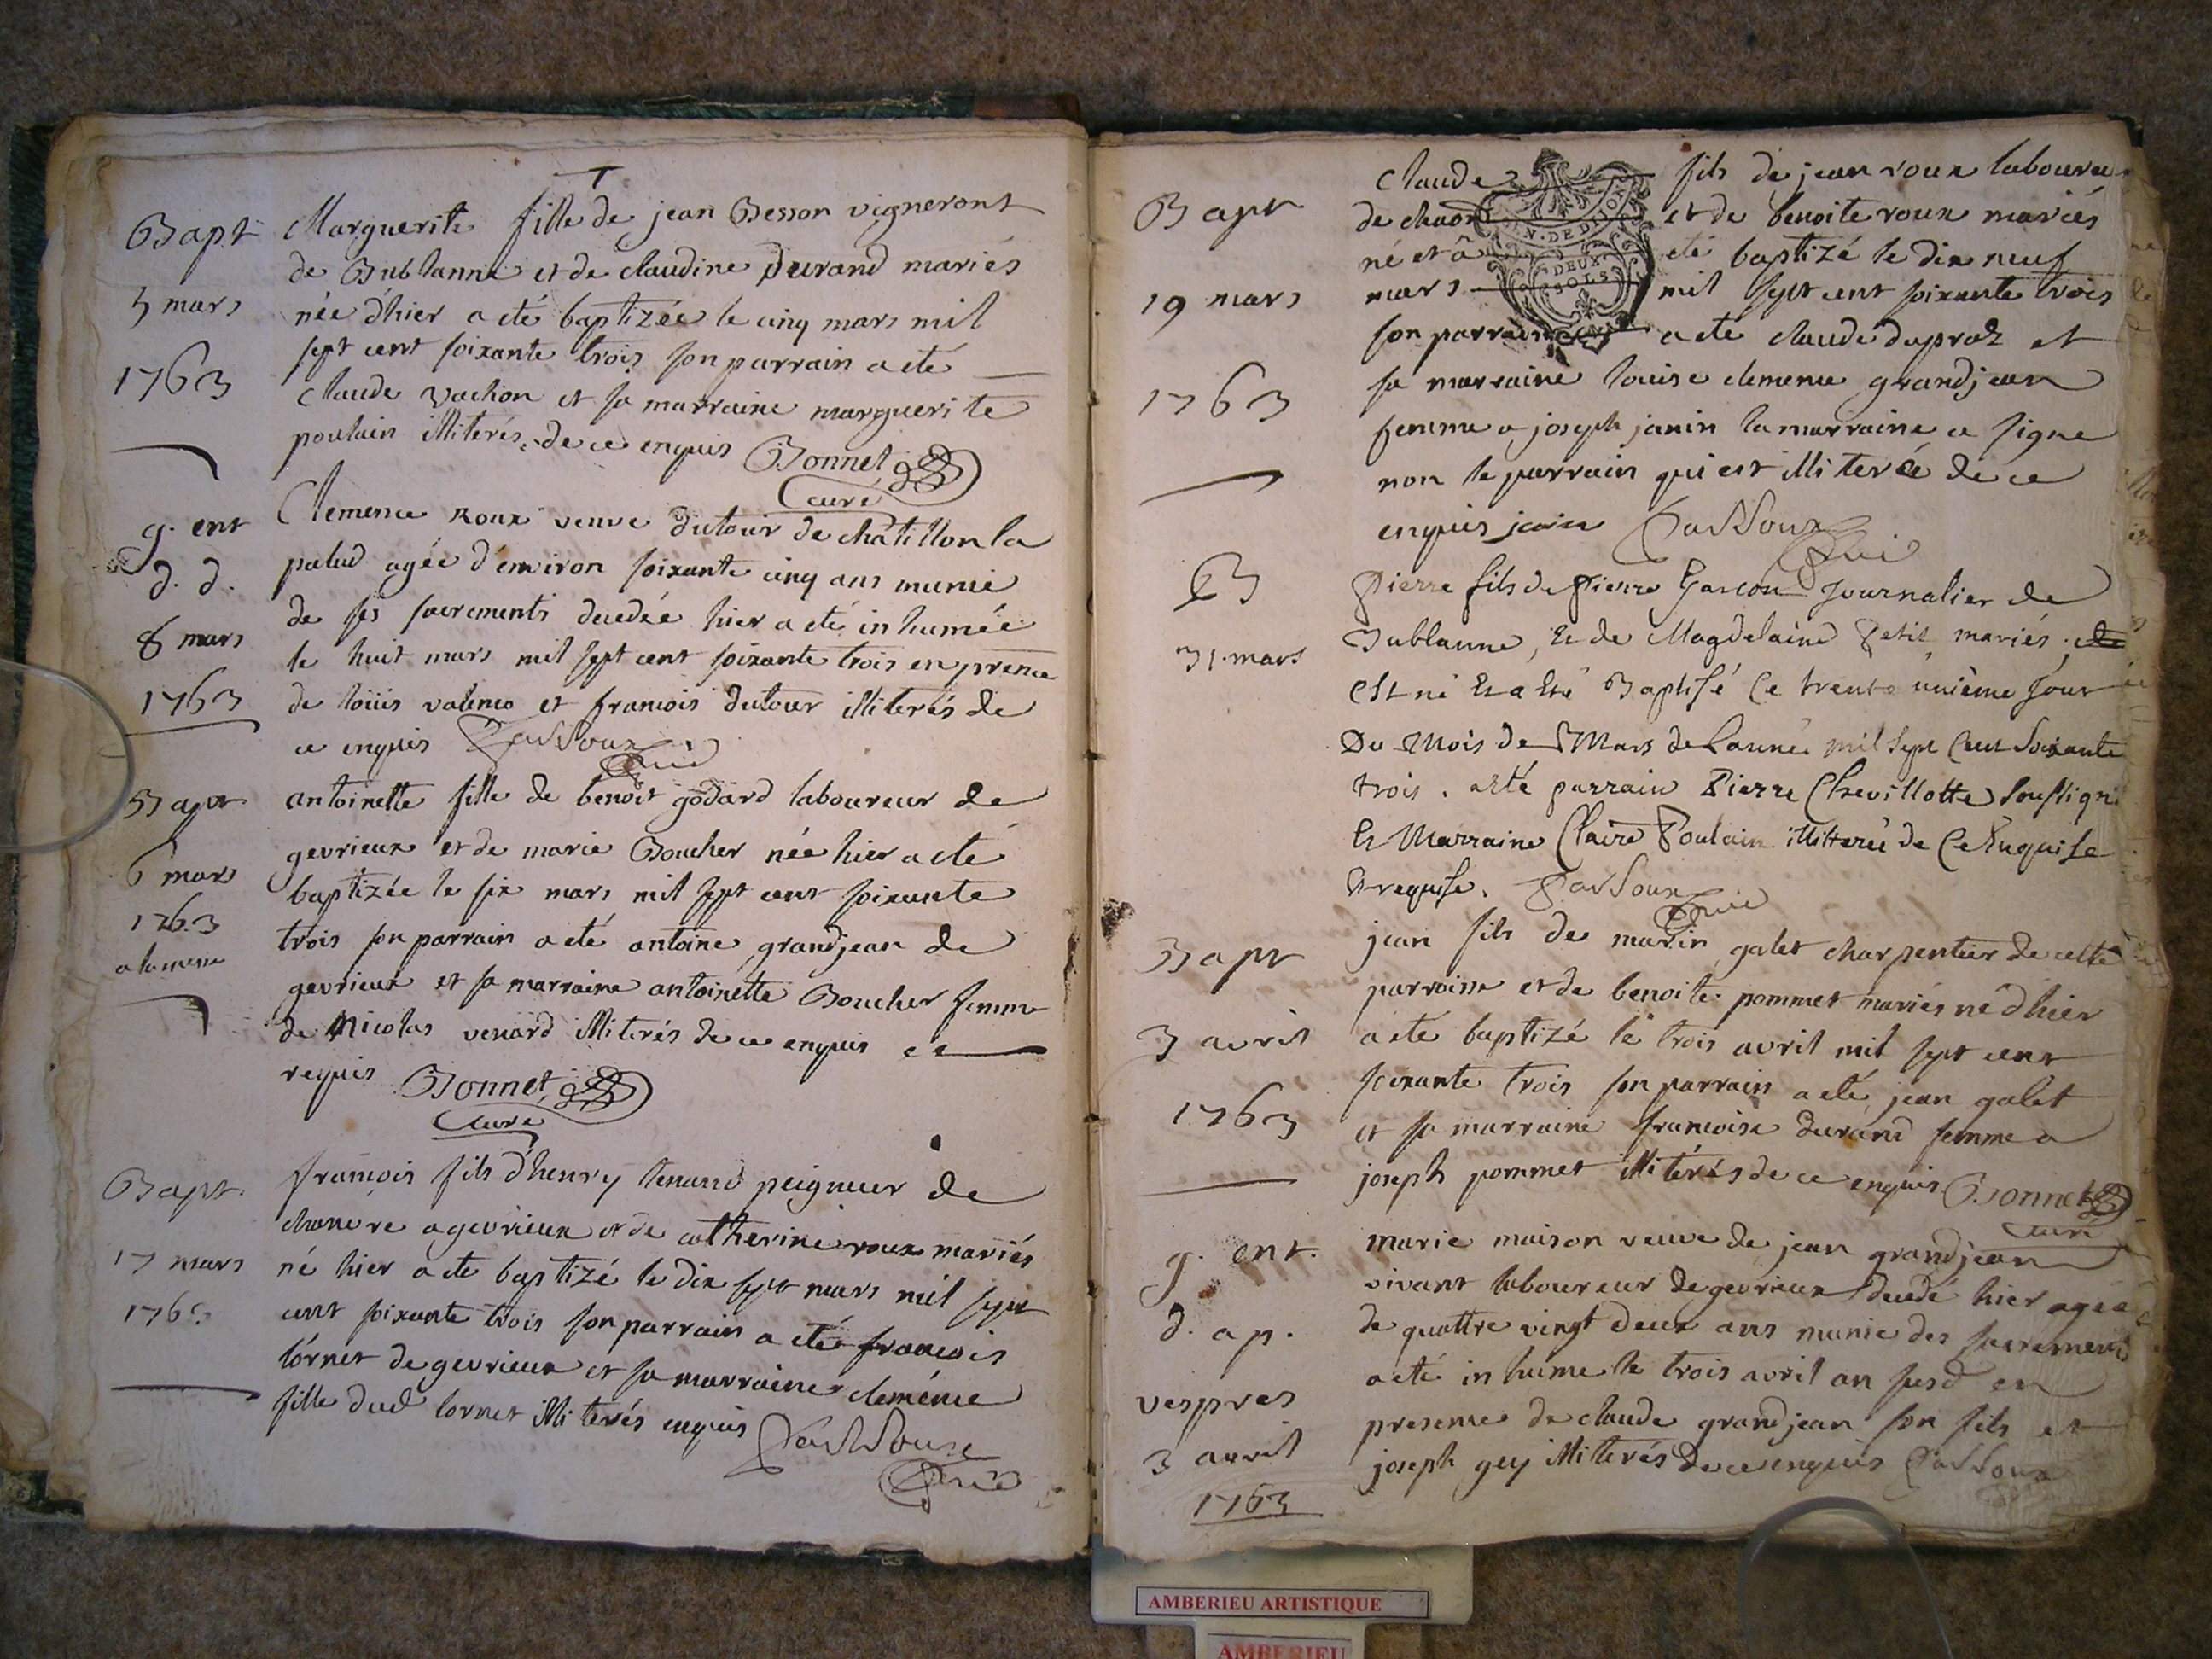 Bapt
5 mars
1763
Marguerite fille de jean Besson vigneront
de Bublanne et de claudine Durand mariés
née d'hier a eté baptizée le cinq mars mil
sept cent soixante trois son parrain a eté
claude vachon et sa marraine marguerite
poulain illiterés de ce enquis Bonnet
Curé
g. ent
d. d.
8 mars
1763
Clemence Roux veuve dutour de châtillon la
palud agée d'environ soixante cinq ans munie
de ses sacrements decedée hier a eté inhumée
le huit mars mil sept cent soixante trois en prence
de loüis valence et francois dutour illiterés de
ce enquis Passoux
Curé
Bapt
6 mars
1763
a la messe
antoinette fille de benoit godard laboureur de
gevrieux et de marie Boucher née hier a eté
baptizée le six mars mil sept cent soixante
trois son parrain a eté antoine grandjean de
gevrieux et sa marraine antoinette Boucher femme
de Nicolas venard illiterés de ce enquis et
requis Bonnet
Curé
Bapt.
17 mars
1763
francois fils d'henry tenand peigneur de
chanvre a gevrieux et de catherine roux mariés
né hier a eté baptizé le dix sept mars mil sept
cent soixante trois son parrain a eté francois
lornet de gevrieux et sa marraine clemence
fille dud lornet illiterés enquis Passoux
Curé
Bapt
19 mars
1763
Claude fils de jean roux laboureur
de et de benoite roux mariés
né et à eté baptizé le dix neuf
mars mil sept cent soixante trois
son parrain a eté claude dupraz et
sa marraine louise clemence grandjean
femme a joseph janin la marraine a signe
non le parrain qui est illiteré de ce
enquis Passoux
Curé
GEN. DE DIJON
DEUX
SOLS
B
31. mars
Pierre fils de Pierre Garcon Journalier de
Bublanne, Et de Magdelaine Petit mariés,
Est né Et a Eté Baptisé le trente unième Jour
Du Mois de Mars de Lannée mil Sept Cent Soixante
trois. a eté parrain Pierre Chevillotte Soussigné
Et Marraine Claire Poulain illitterée de Ce Enquise
Et requise. Passoux
Curé
Bapt
3 avril
1763
jean fils de marin galet charpentier de cette
parroisse et de benoite pommet mariés né d'hier
a eté baptizé le trois avril mil sept cent
soixante trois son parrain a eté jean galet
et sa marraine francoise durand femme a
joseph pommet illiterés de ce enquis Bonnet
Curé
g. ent.
d. ap.
vespres
3 avril
1763
marie maison veuve de jean grandjean
vivant laboureur de gevrieux decedé hier agée
de quattre vingt deux ans munie des sacrements
a eté inhume le trois avril an susd en
presence de claude grandjean son fils et
joseph guy illiterés de ce enquis Passoux
AMBERIEU ARTISTIQUE
AMBERIEU